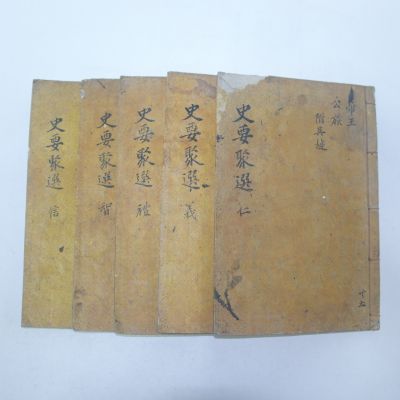 帝王
公族
史要聚選 仁
史要聚選 義
史要聚選 禮
史要聚選 智
史要聚選 信